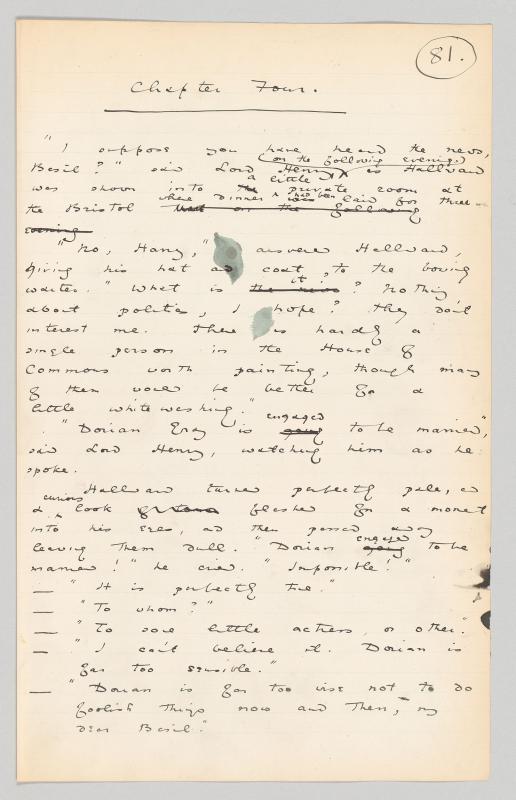 81.
Chapter Four.
"I suppose you have heard the news,
(on the following evening)
Basil?" said Lord Henry as Hallward
a little
was shown into the private room at
where dinner had been
the Bristol was laid for three.
on the following
evening
"No, Harry," answered Hallward,
giving his hat and coat to the bowing
it
waiter. "What is the news? Nothing
about politics, I hope? They don't
interest me. There is hardly a
single person in the House of
Commons worth painting, though many
of them would be better for a
little whitewashing."
engaged
"Dorian Gray is going to be married",
said Lord Henry, watching him as he
spoke.
Hallward turned perfectly pale, and
curious
a look flashed for a moment
into his eyes, and then passed away
engaged
leaving them dull. "Dorian going to be
married!" he cried. "Impossible!"
— "It is perfectly true."
— "To whom?"
— "To some little actress, or other."
— "I can't believe it. Dorian is
far too sensible."
— "Dorian is far too wise not to do
foolish things now and then, my
dear Basil."